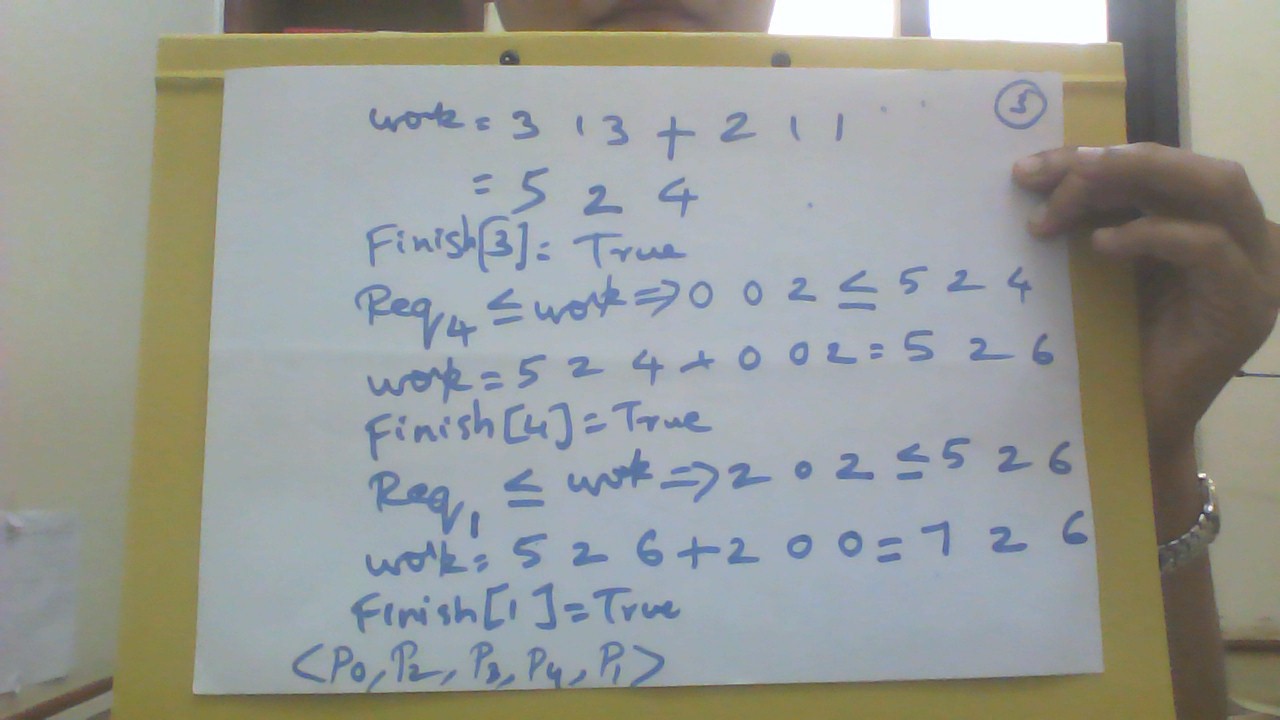 ③
work = 3 1 3 + 2 1 1
= 5 2 4
Finish[3] = True
Req4 ≤ work ⇒ 0 0 2 ≤ 5 2 4
work = 5 2 4 + 0 0 2 = 5 2 6
Finish[4] = True
Req1 ≤ work ⇒ 2 0 2 ≤ 5 2 6
work = 5 2 6 + 2 0 0 = 7 2 6
Finish[1] = True
<P0, P2, P3, P4, P1>